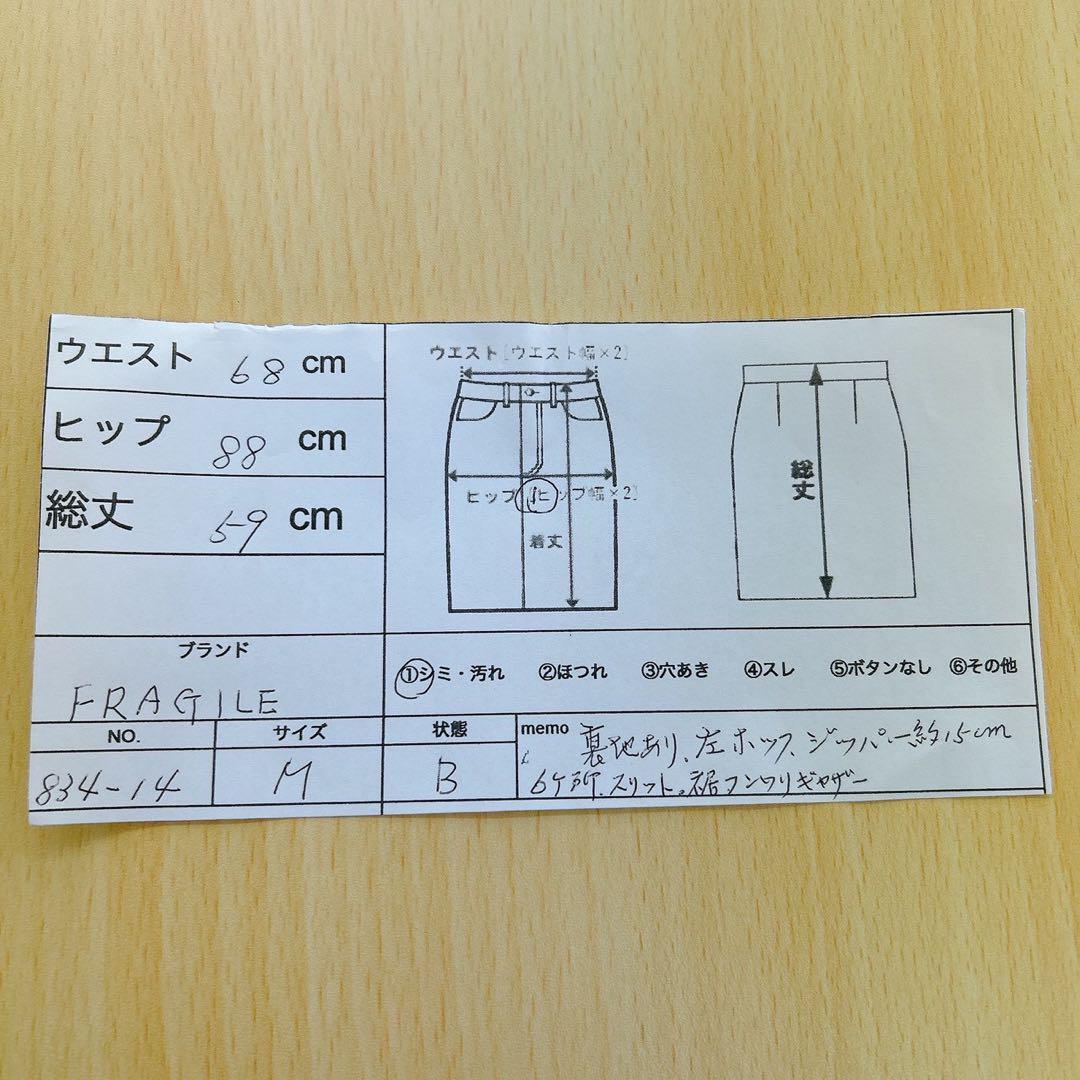 ウエスト 68 cm
ヒップ 88 cm
総丈 59 cm
ブランド
FRAGILE
NO.
834-14
サイズ
M
ウエスト[ウエスト幅×2]
ヒップ[ヒップ幅×2]
着丈
総丈
①シミ・汚れ ②ほつれ ③穴あき ④スレ ⑤ボタンなし ⑥その他
状態
B
memo 裏地あり、左ホック、ジッパー約15cm
6ヶ所、スリット。裾フンワリギャザー